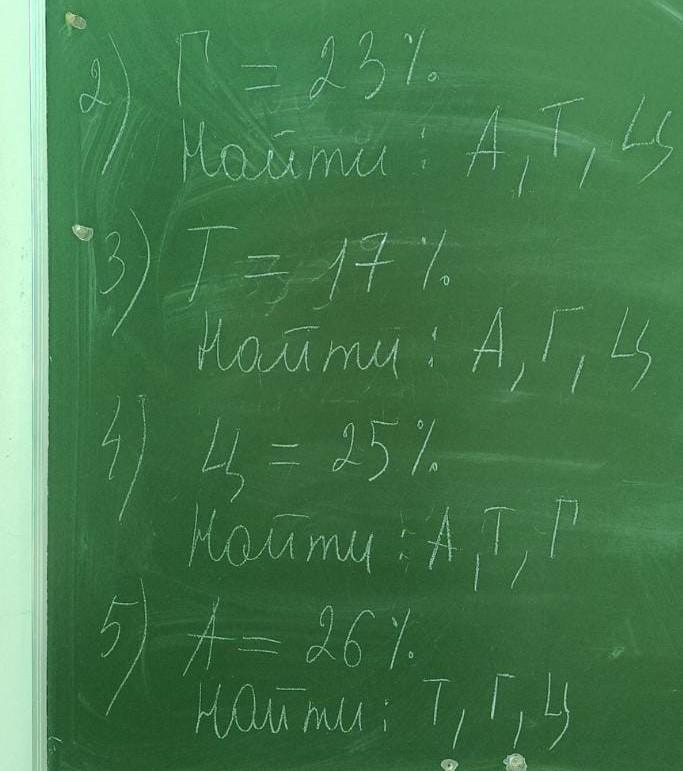 2) Г = 23%
Найти: А, Т, Ц
3) Т = 17%
Найти: А, Г, Ц
4) Ц = 25%
Найти: А, Т, Г
5) А = 26%
Найти: Т, Г, Ц